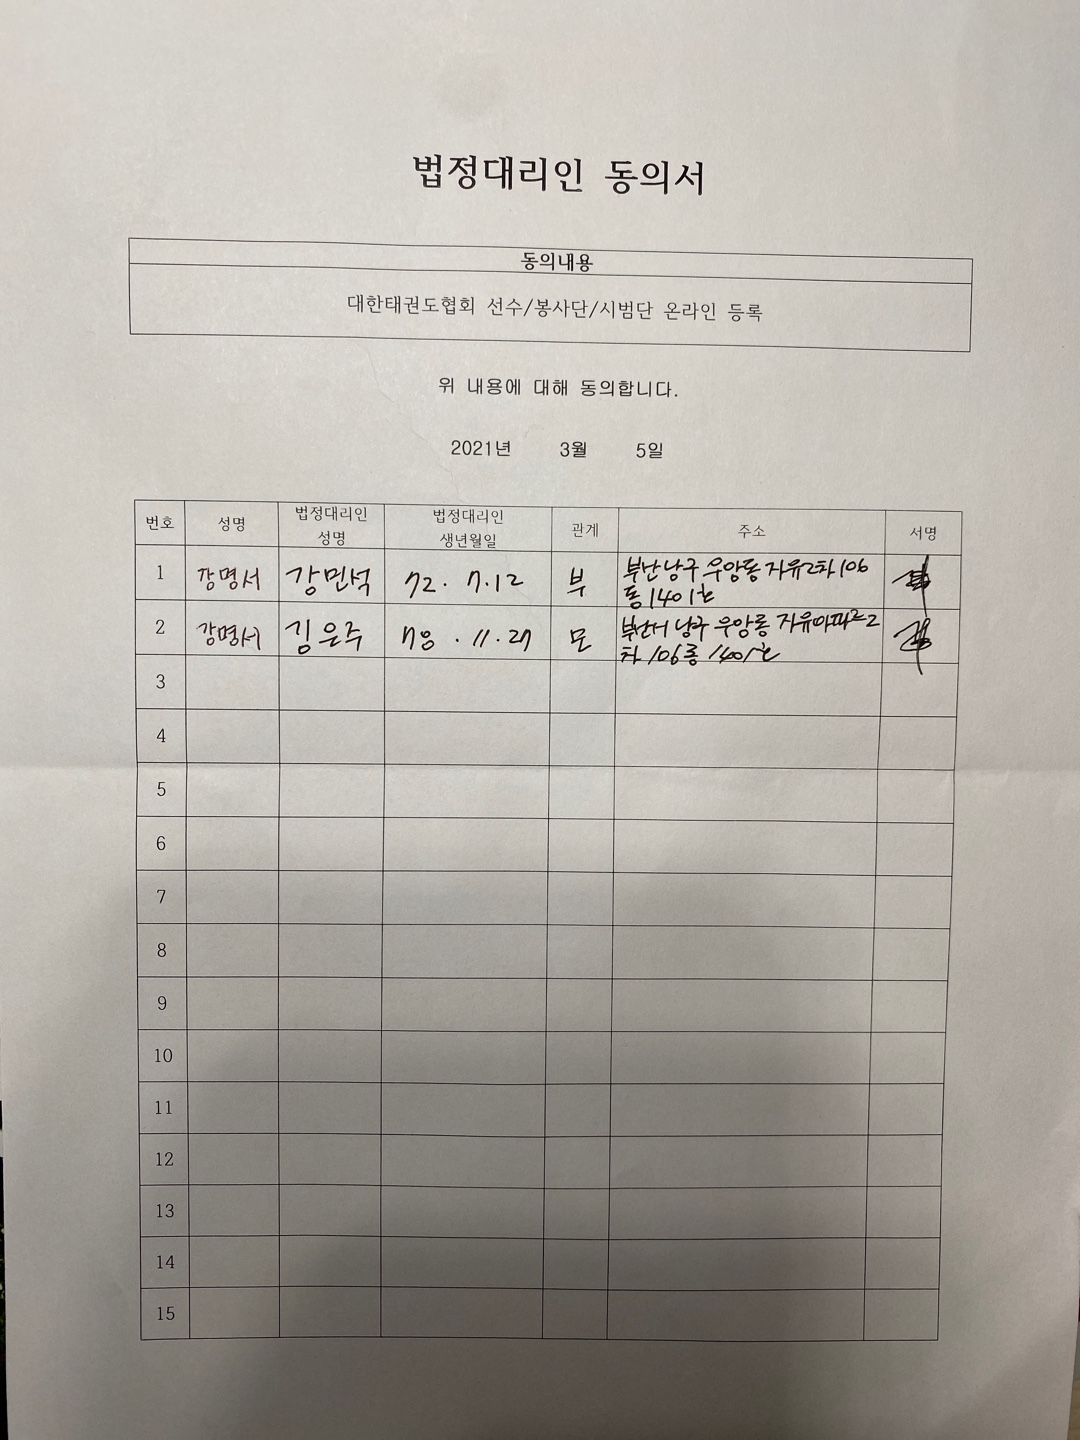 법정대리인 동의서
동의내용
대한태권도협회 선수/봉사단/시범단 온라인 등록
위 내용에 대해 동의합니다.
2021년 3월 5일
번호 성명 법정대리인 성명 법정대리인 생년월일 관계 주소 서명
1 강명서 강민석 72. 7.12 부 부산남구 우암동 자유2차106
동1401호
2 강명서 김은주 78 . 11. 27 모 부산시 남구 우암동 자유아파트2
차 106동 1401호
3
4
5
6
7
8
9
10
11
12
13
14
15